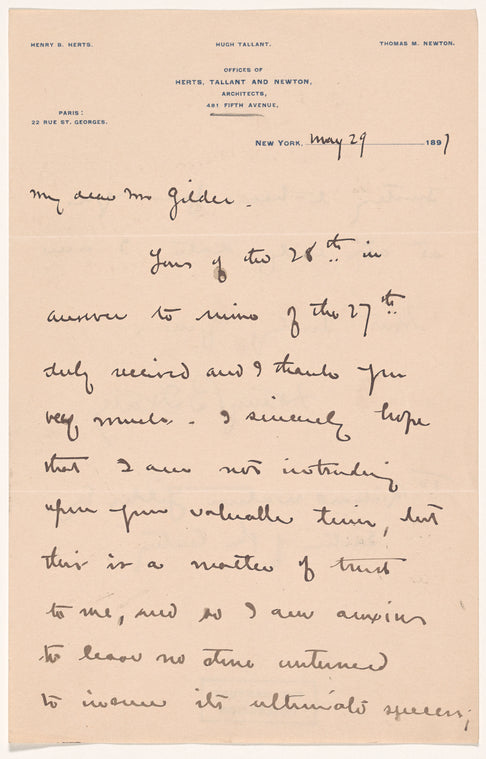 HENRY B. HERTS. HUGH TALLANT. THOMAS M. NEWTON.
OFFICES OF
HERTS, TALLANT AND NEWTON,
ARCHITECTS,
491 FIFTH AVENUE,
PARIS:
22 RUE ST. GEORGES.
NEW YORK, May 29 1897
My dear Mr Gilder.
Yours of the 28th in
answer to mine of the 27th
duly received and I thank you
very much. I sincerely hope
that I am not intruding
upon your valuable time, but
this is a matter of trust
to me, and so I am anxious
to leave no stone unturned
to insure its ultimate success;